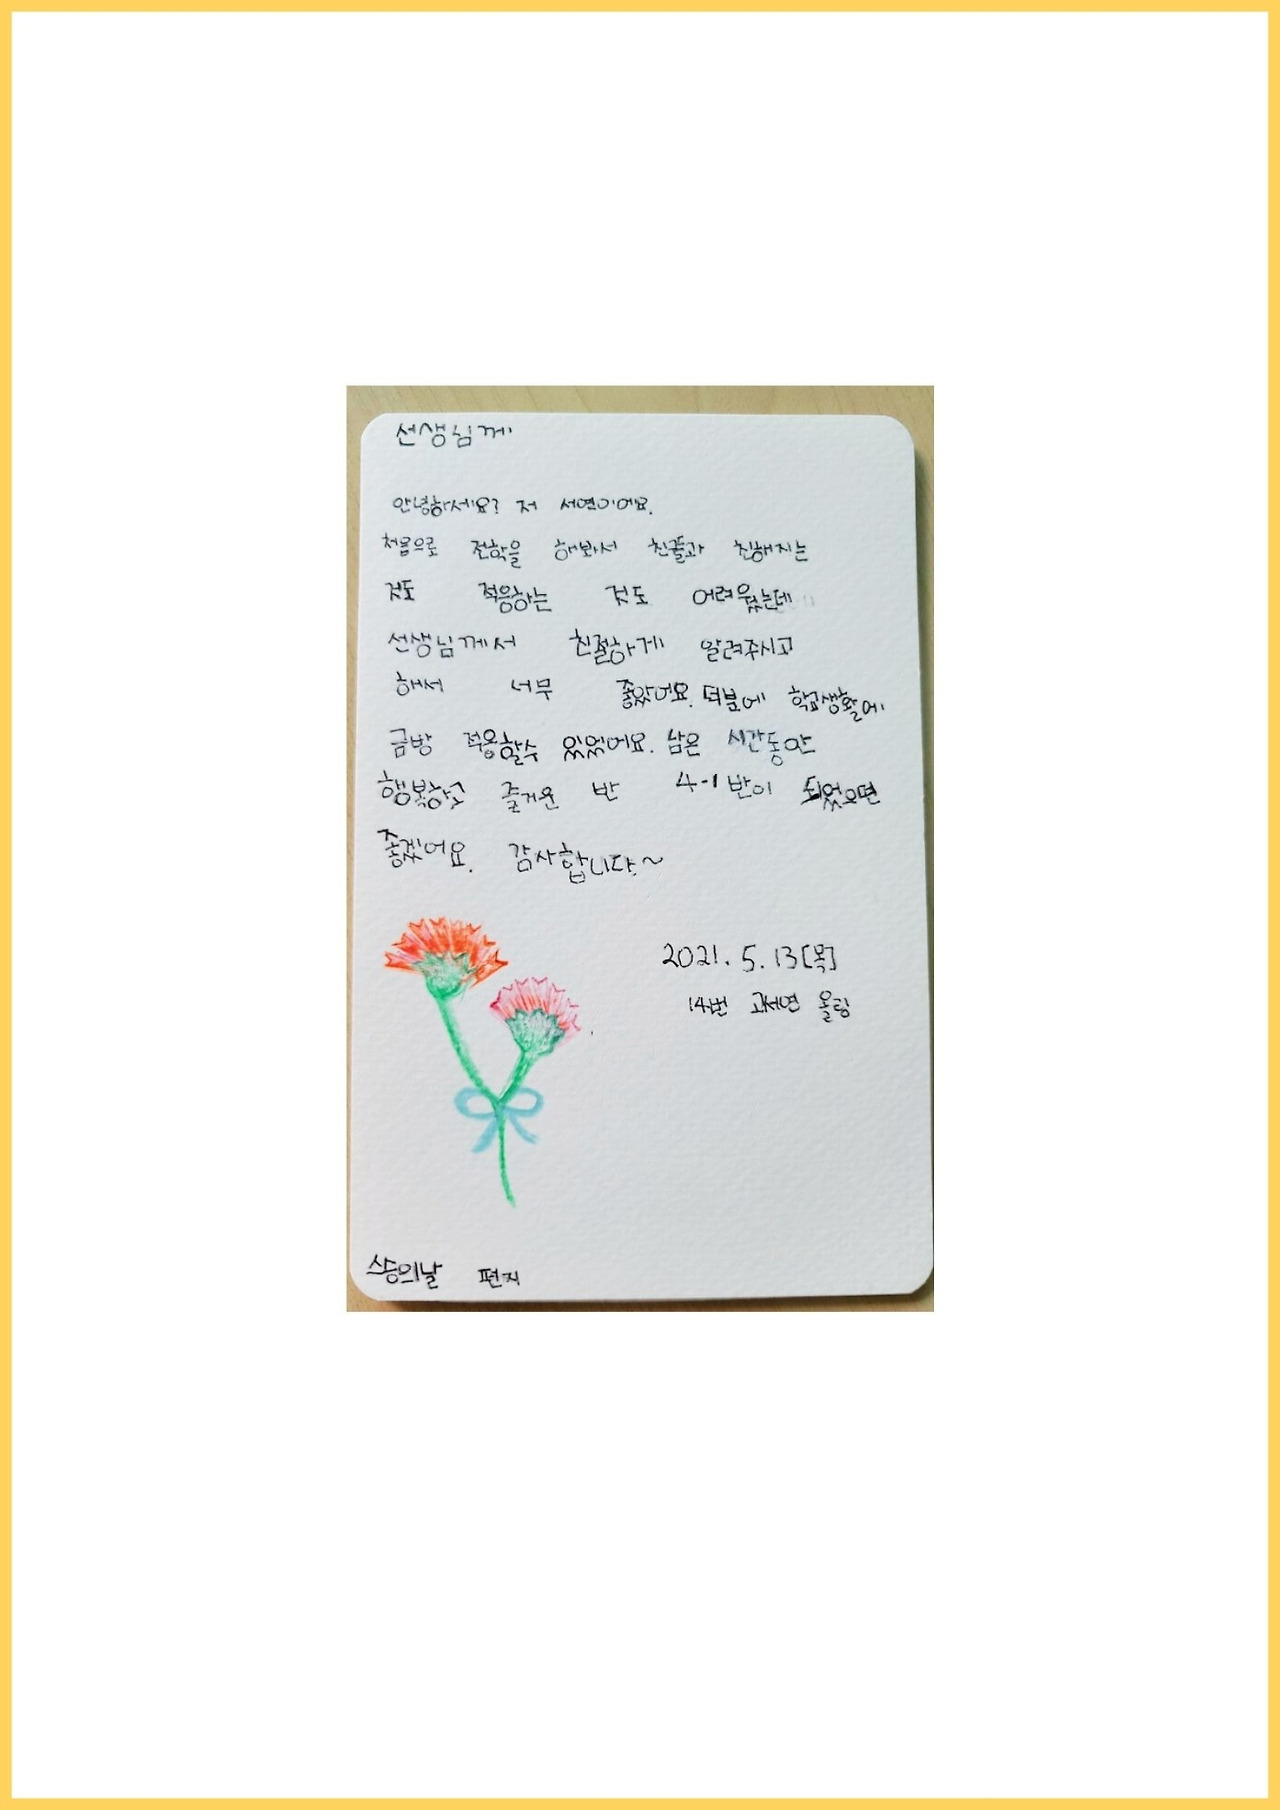 선생님께
안녕하세요? 저 서연이에요.
처음으로 전학을 해봐서 친구들과 친해지는
것도 적응하는 것도 어려웠는데
선생님께서 친절하게 알려주시고
해서 너무 좋았어요. 덕분에 학교생활에
금방 적응할수 있었어요. 남은 시간동안
행복하고 즐거운 반 4-1반이 되었으면
좋겠어요. 감사합니다.~
2021. 5. 13[목]
14번 고서연 올림
스승의날 편지